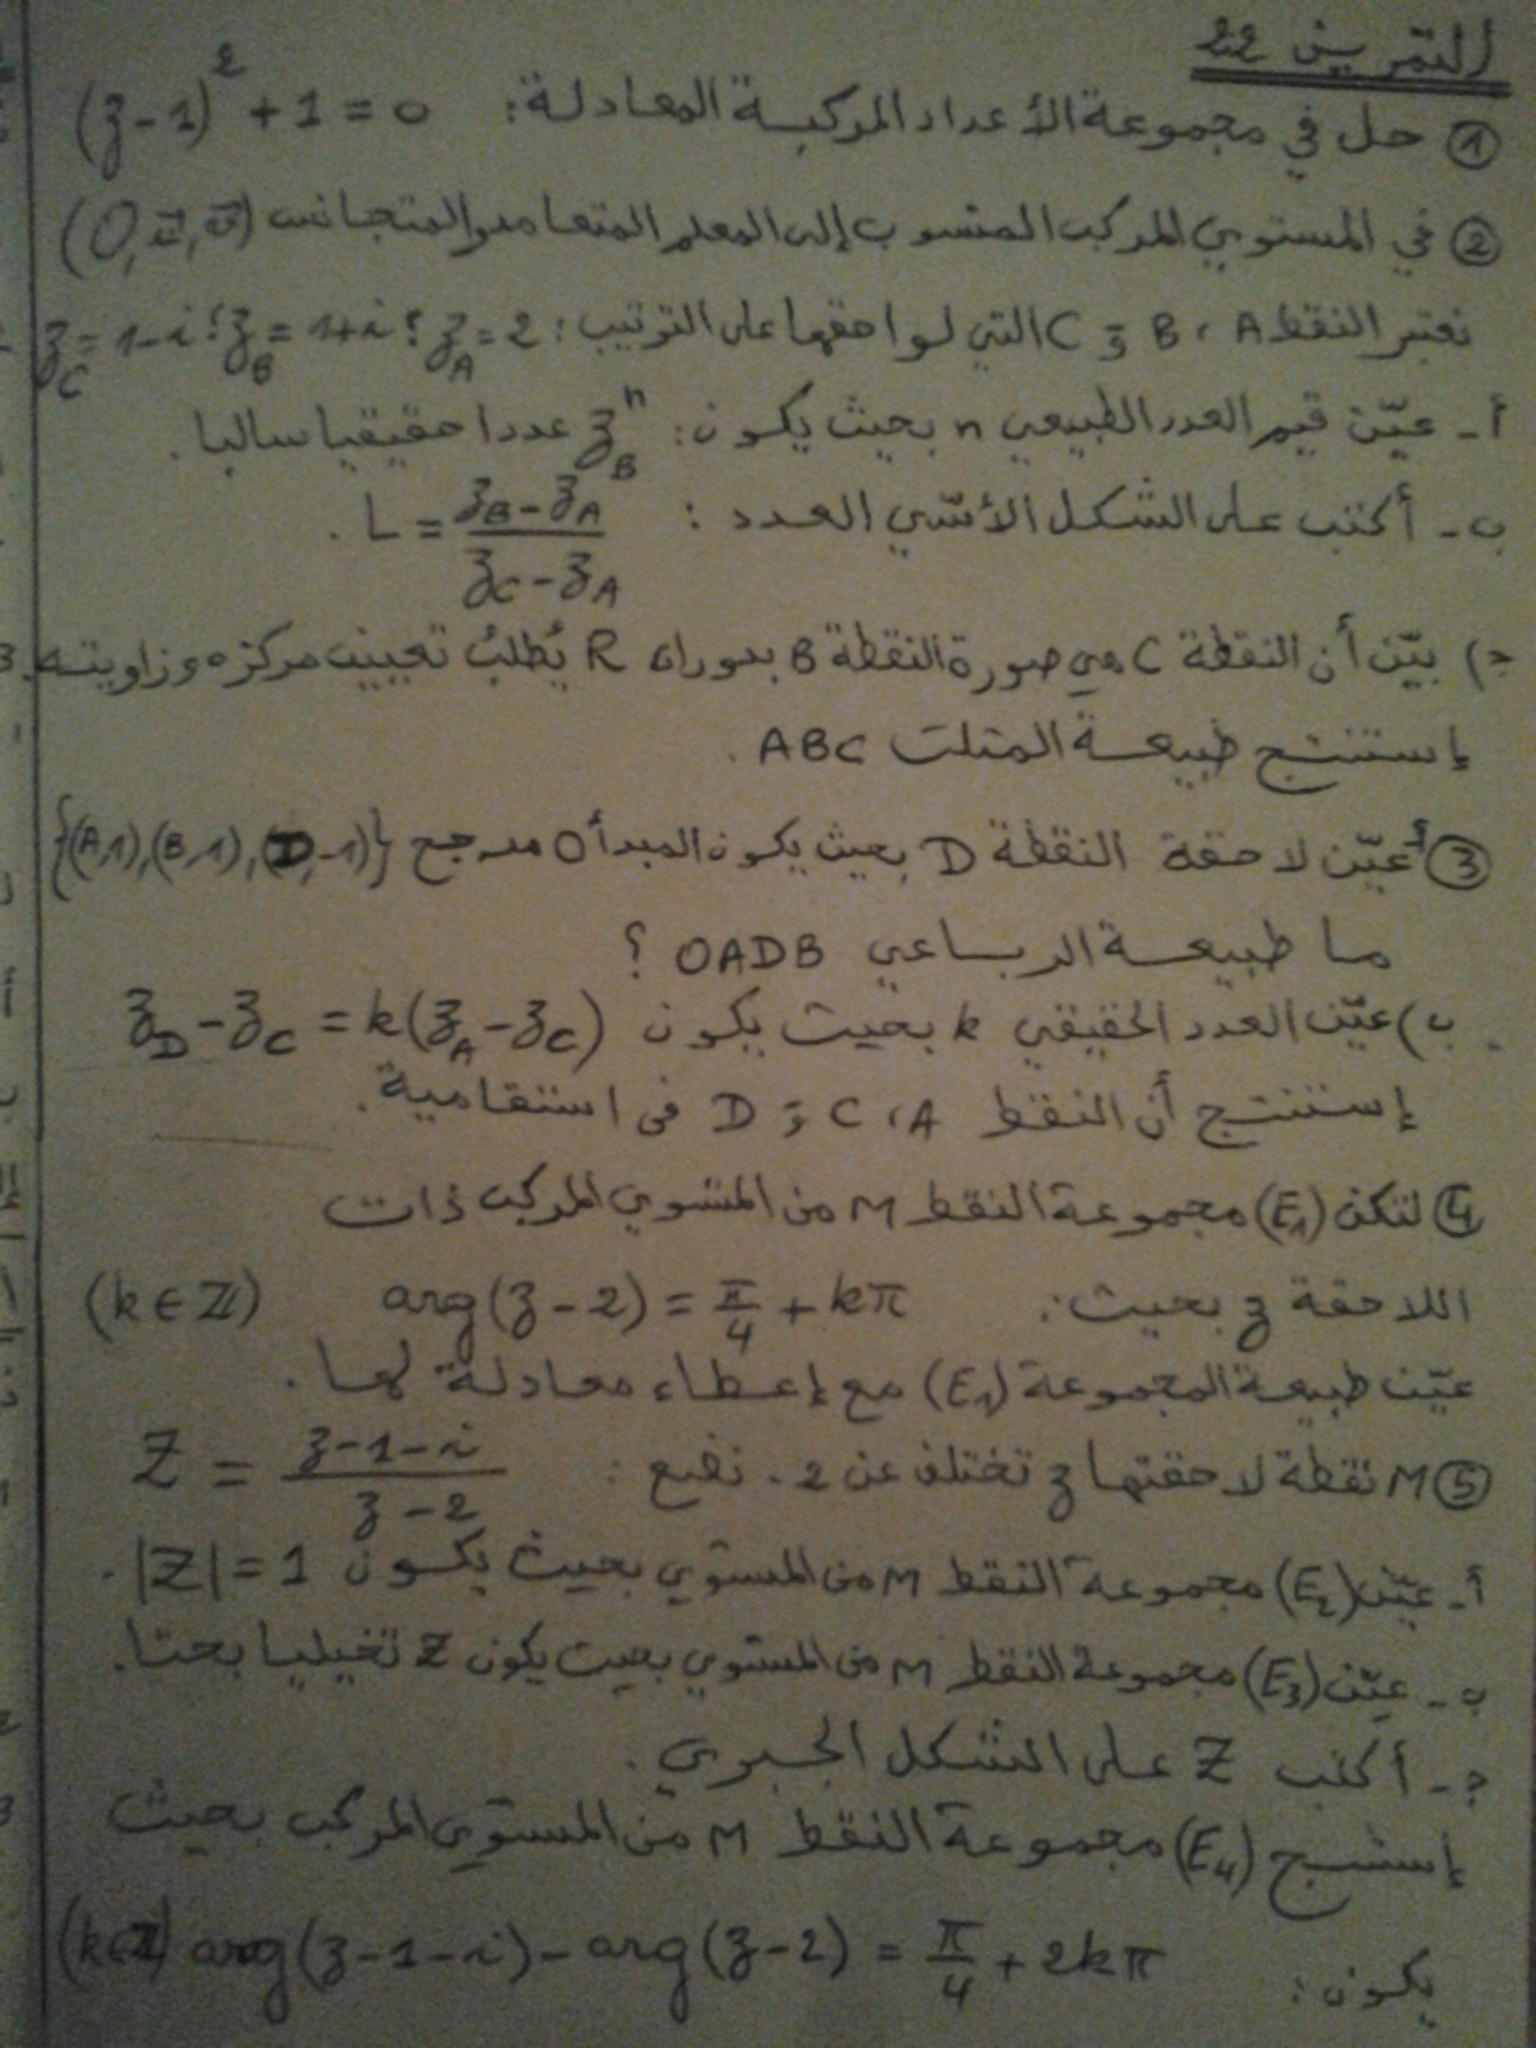 التمرين 22
① حل في مجموعة الأعداد المركبة المعادلة: (z-1)² + 1 = 0
② في المستوي المركب المنسوب إلى المعلم المتعامد والمتجانس (O, u⃗, v⃗)
نعتبر النقط A ، B و C التي لواحقها على الترتيب: z_A = 2 ; z_B = 1+i ; z_C = 1-i
أ- عيّن قيم العدد الطبيعي n بحيث يكون: z_B^n عددا حقيقيا سالبا.
ب- أكتب على الشكل الأسّي العدد: L = (z_B - z_A)/(z_C - z_A).
ج) بيّن أن النقطة C هي صورة النقطة B بدوران R يُطلبُ تعيين مركزه وزاويته.
إستنتج طبيعة المثلث ABC.
③ أ عيّن لاحقة النقطة D بحيث يكون المبدأ O مرجح {(A,1),(B,1),(D,-1)}
ما طبيعة الرباعي OADB ؟
ب) عيّن العدد الحقيقي k بحيث يكون z_D - z_C = k(z_A - z_C)
إستنتج أن النقط A ، C و D في استقامية.
④ لتكن (E₁) مجموعة النقط M من المستوي المركب ذات
اللاحقة z بحيث: arg(z-2) = π/4 + kπ (k∈Z)
عيّن طبيعة المجموعة (E₁) مع إعطاء معادلة لها.
⑤ M نقطة لاحقتها z تختلف عن 2. نضع: Z = (z-1-i)/(z-2)
أ- عيّن (E₂) مجموعة النقط M من المستوي بحيث يكون |Z| = 1.
ب- عيّن (E₃) مجموعة النقط M من المستوي بحيث يكون Z تخيليا بحتا.
ج- أكتب Z على الشكل الجبري.
إستنتج (E₄) مجموعة النقط M من المستوي المركب بحيث
يكون: arg(z-1-i) - arg(z-2) = π/4 + 2kπ (k∈Z)